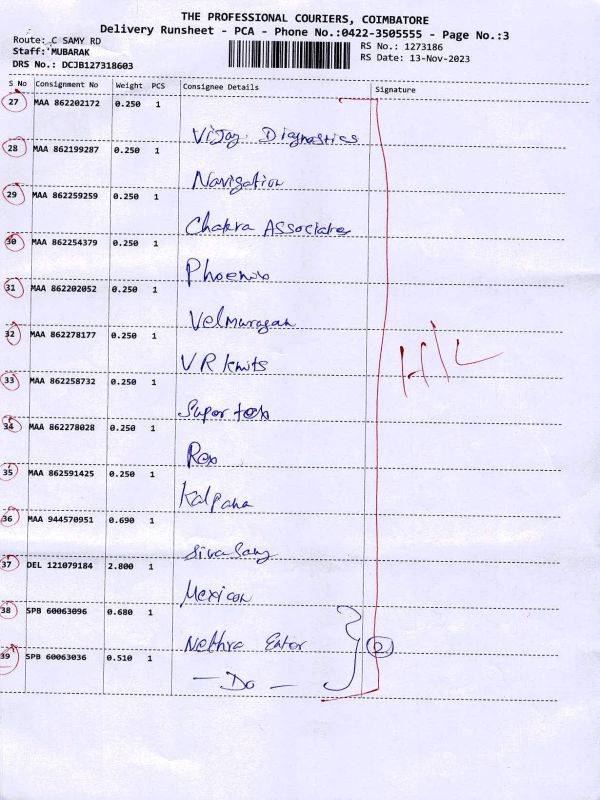 THE PROFESSIONAL COURIERS, COIMBATORE
Delivery Runsheet - PCA - Phone No.:0422-3505555 - Page No.:3
Route: C SAMY RD
RS No.: 1273186
Staff: MUBARAK
RS Date: 13-Nov-2023
DRS No.: DCJB127318603
S No Consignment No Weight PCS Consignee Details Signature
27 MAA 862202172 0.250 1
Vijay Diagnostics
28 MAA 862199287 0.250 1
Navigation
29 MAA 862259259 0.250 1
Chakra Associates
30 MAA 862254379 0.250 1
Phoenix
31 MAA 862202052 0.250 1
Velmurugan
32 MAA 862278177 0.250 1
VR knits
H/L
33 MAA 862258732 0.250 1
Super tex
34 MAA 862278028 0.250 1
Rex
35 MAA 862591425 0.250 1
Kalpana
36 MAA 944570951 0.690 1
Sivasamy
37 DEL 121079184 2.800 1
Mexican
38 SPB 60063096 0.680 1
Nethra Enter
2
39 SPB 60063036 0.510 1
— Do —